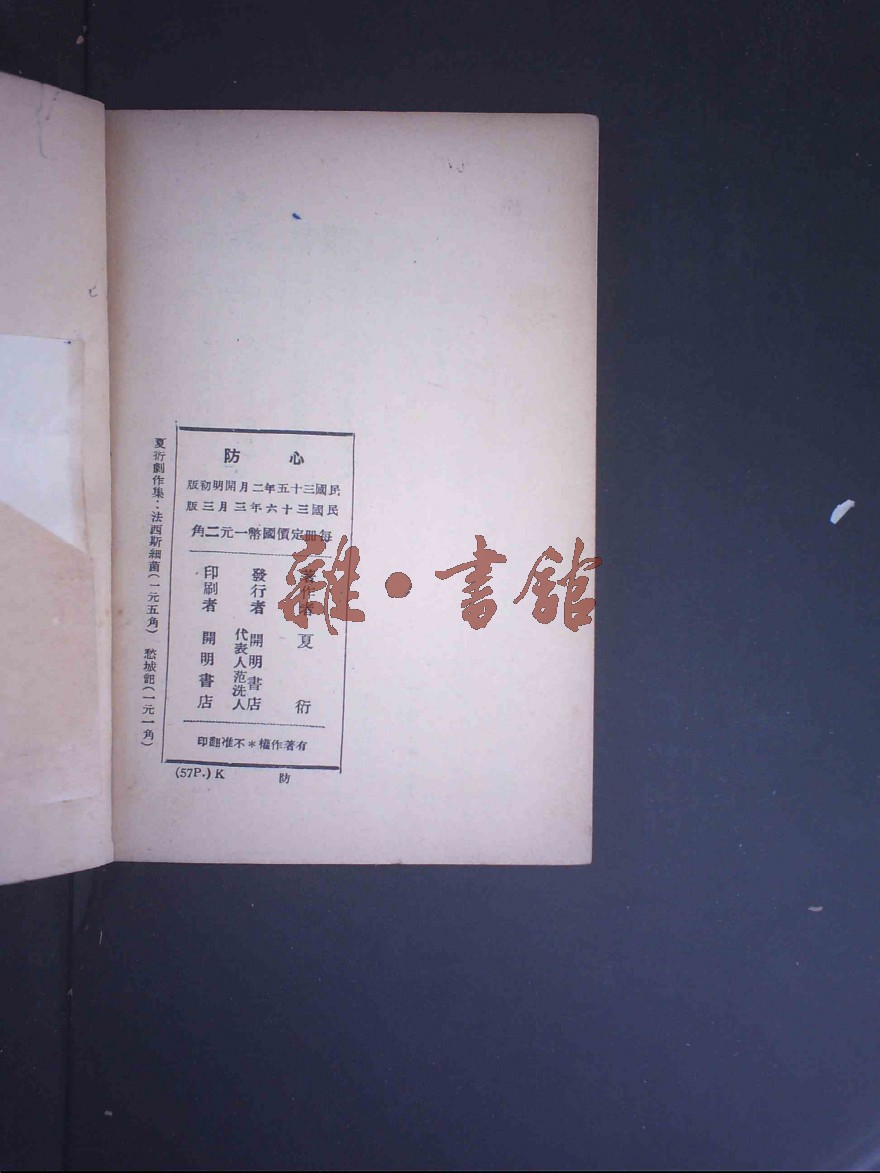 心防
民國三十五年二月開明初版
民國三十六年三月三版
每冊定價國幣一元二角
著作者 夏衍
發行者 開明書店
代表人范洗人
印刷者 開明書店
有著作權*不准翻印
(57P.) K 防
夏衍劇作集：法西斯細菌(一元五角) 愁城記(一元一角)
雜·書館